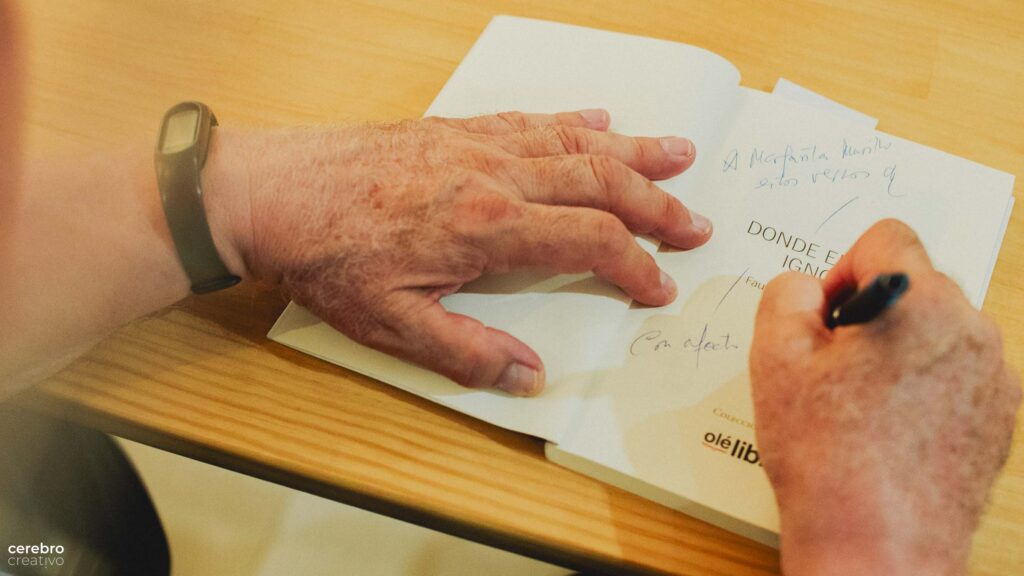 A Margarita Murillo
estos versos q
DONDE E
IGNO
Fau
Con afecto
Colecció
olé lib
cerebro
creativo